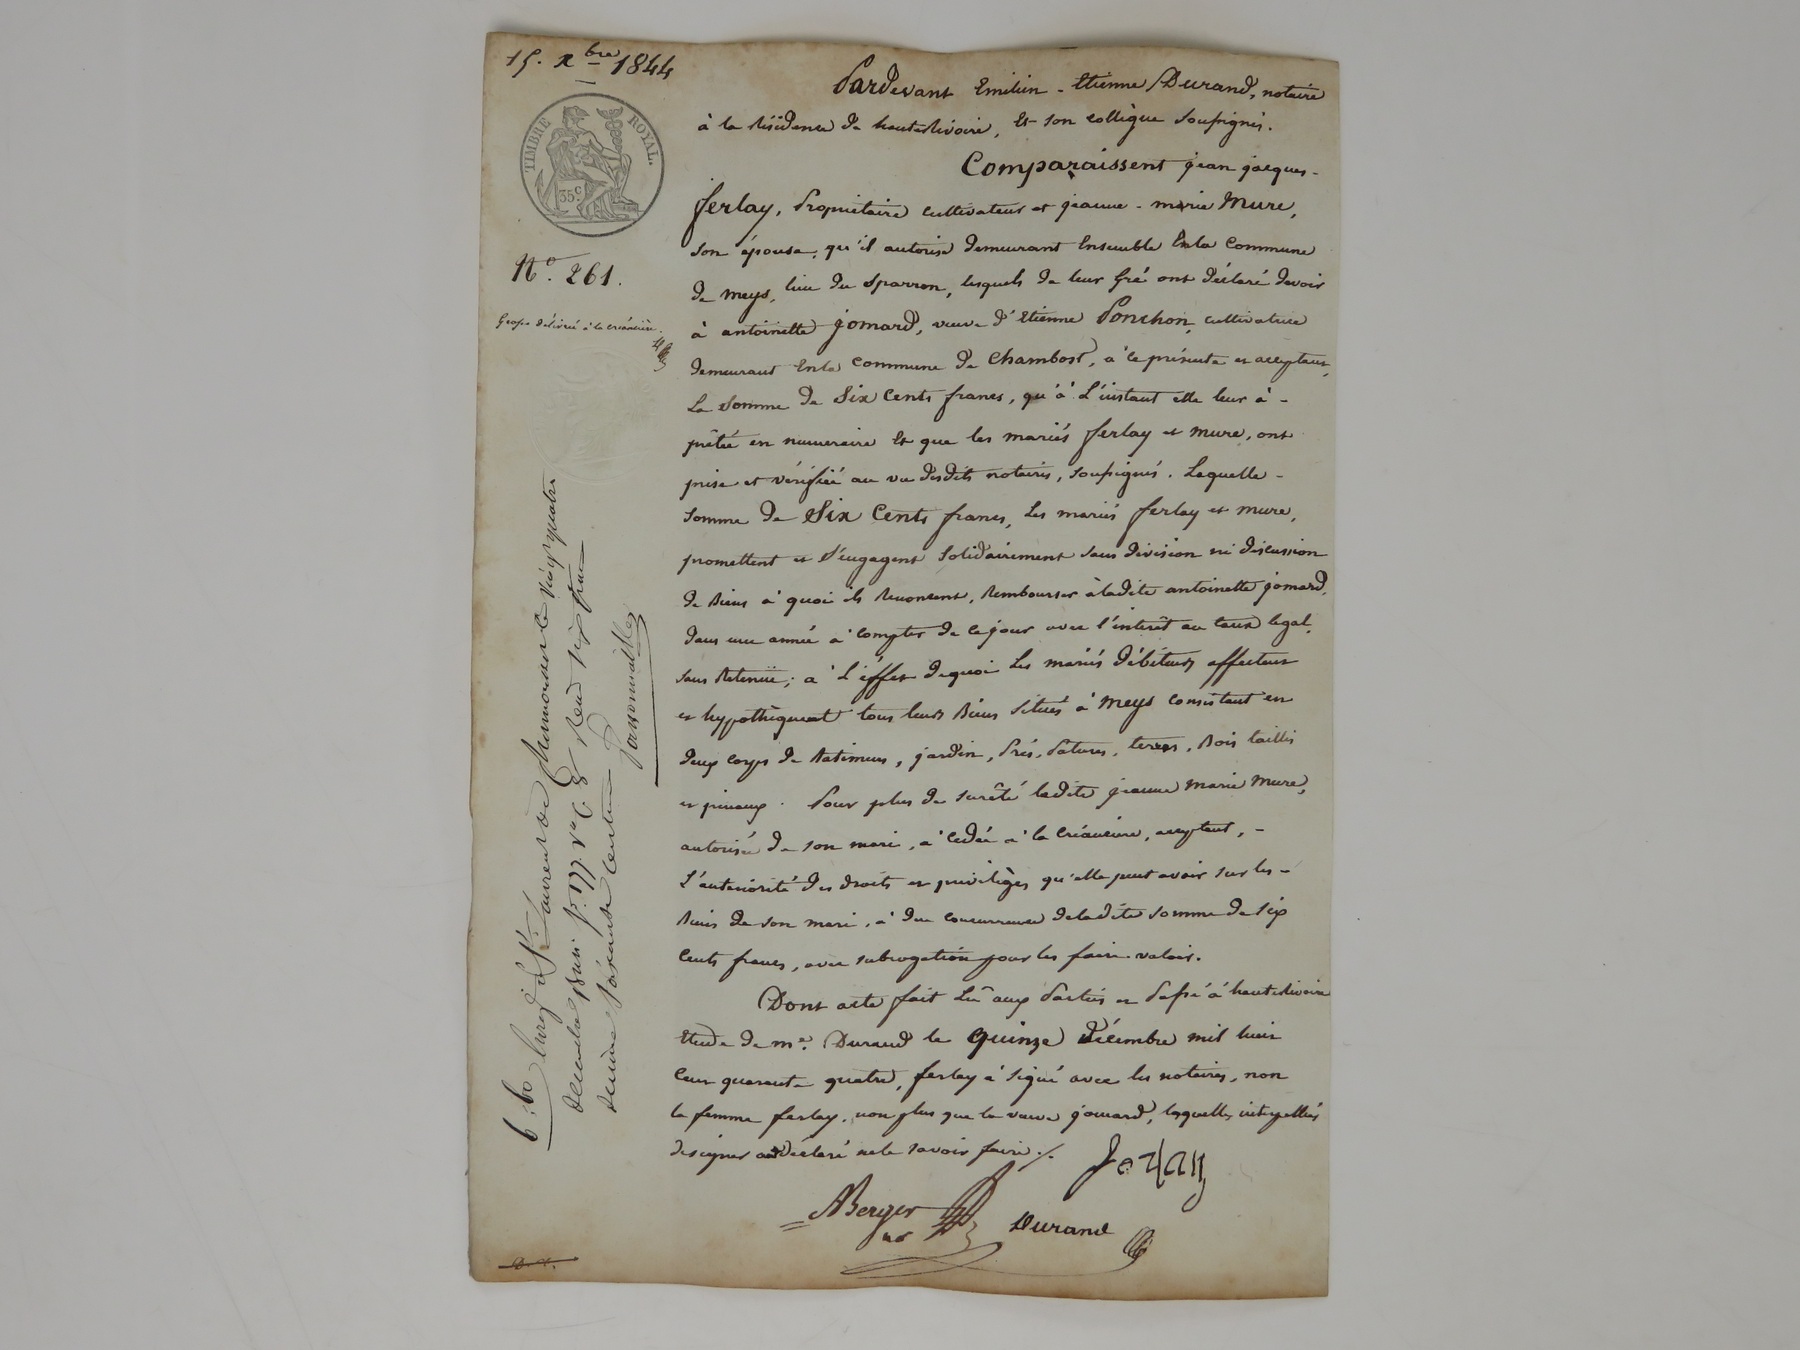 15. Xbre 1844
TIMBRE ROYAL.
35c
No. 261.
Grosse délivré à la créancière.
Pardevant Emilien-Etienne Durand, notaire
à la Résidence de hauterivoire, Et son collègue soussignés.
Comparaissent jean jacques-
ferlay, Propriétaire cultivateur et jeanne-marie Mure,
son épouse, qu'il autorise demeurant Ensemble Enla Commune
de meys, lieu du Sparron, lesquels de leur Gré ont déclaré devoir
à antoinette jomard, veuve d'Etienne Ponchon, cultivatrice
demeurant Enla commune de Chambost, à ce présente et acceptant,
La Somme de Six Cents francs, qu'à L'instant elle leur à-
prêtée en numeraire Et que les mariés ferlay et mure, ont
prise et vérifiée au vu desdits notaires, soussignés. Laquelle-
somme de Six Cents francs, Les mariés ferlay et mure,
promettent et s'engagent solidairement sans division ni discussion
de Biens à quoi ils Renoncent, Rembourser àladite antoinette jomard,
dans une année à compter de cejour avec l'intérêt au taux légal,
sans Retenüe; à L'éffet dequoi Les mariés débiteurs affectent
et hypothèquent tous leurs Biens situés à Meys consistant en
deux corps de Batimens, jardin, Prés, Patures, terres, Bois taillis
et pineaux. Pour plus de sureté ladite jeanne Marie Mure,
autorisée de son mari, à cédée à la Créancière, acceptant,-
L'antériorité des droits et privilèges qu'elle peut avoir sur les-
Biens de son mari, à due concurrence deladite somme de six
Cents francs, avec subrogation pour les faire valoir.
Dont acte fait Lu aux Parties et Passé à hauterivoire
Etude de me. Durand le quinze décembre mil huit
cent quarante quatre, ferlay à signé avec les notaires, non
la femme ferlay, non plus que la veuve jomard, lesquelles interpellées
designer ont déclaré nele savoir faire./.
ferlay
ABerger
nre
Durand
6.60 Enreg. à St. Laurent de Chamousset le vingt quatre
décembre 1844 f. 177 vo C. 8 Reçu six francs
décime soixante centimes